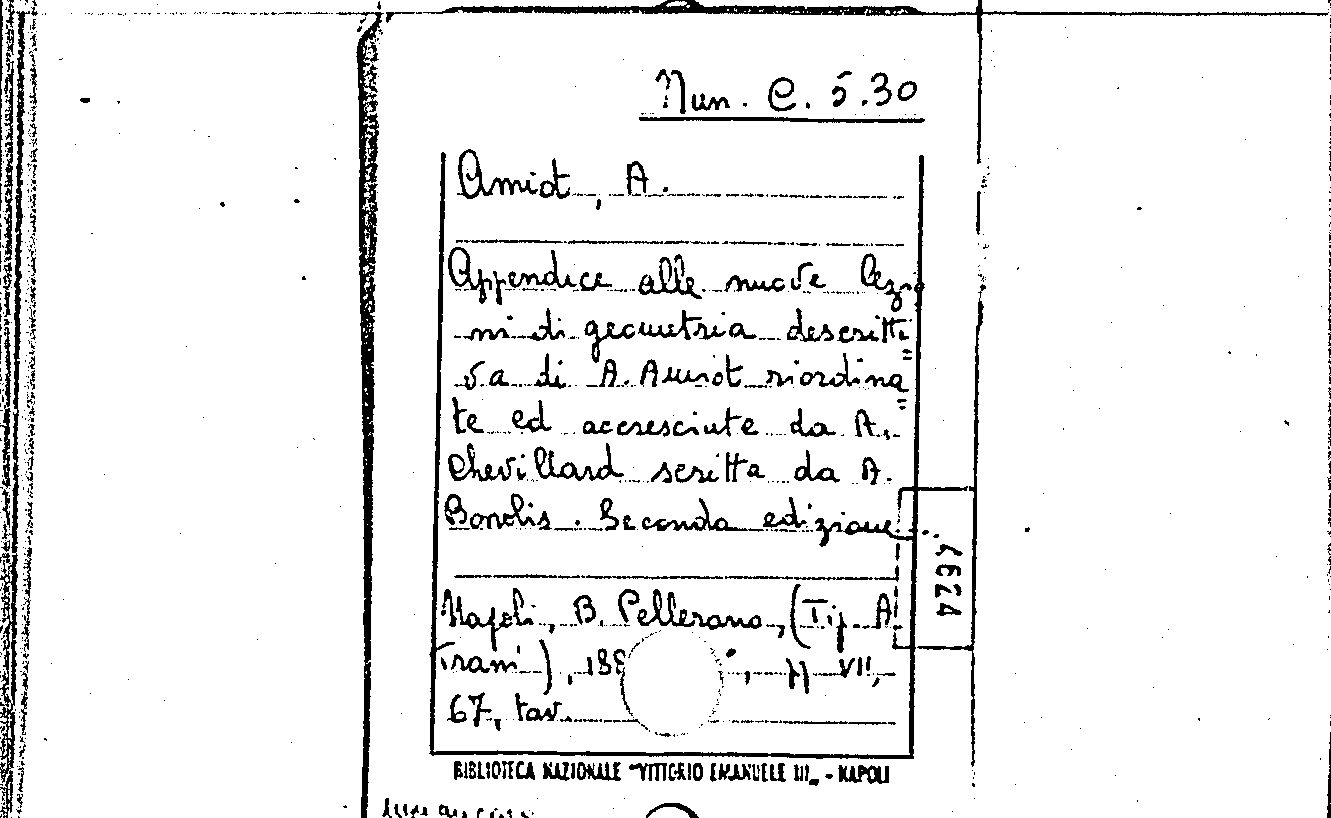 Nun. C. 5.30
Amiot, A.
Appendice alle nuove lezio
ni di geometria descritti
=
va di A. Amiot riordina
=
te ed accresciute da A.
Chevillard scritta da A.
Bonolis. Seconda edizione...
4624
Napoli, B. Pellerano, (Tip. A.
Trani), 188 , pp VII,
67, tav.
BIBLIOTECA NAZIONALE "VITTORIO EMANUELE III" - NAPOLI